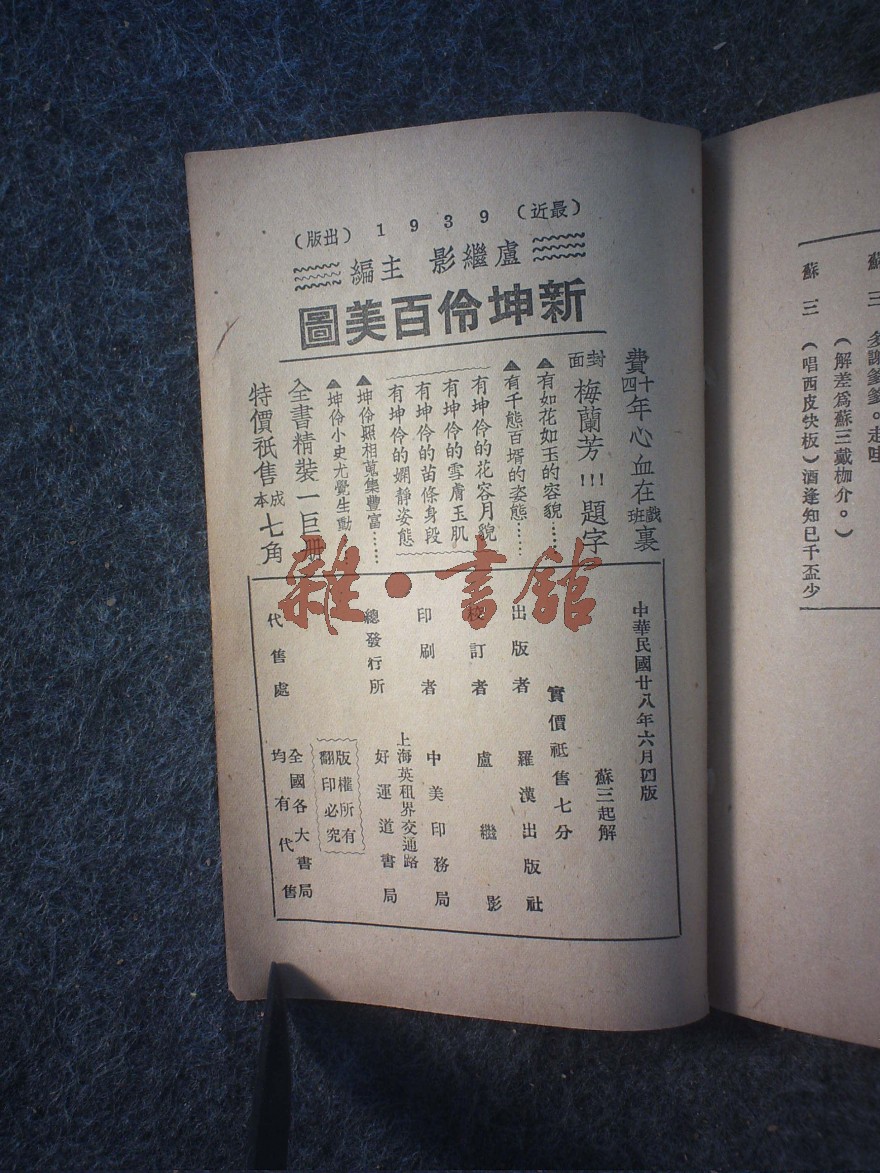 蘇三　多謝爹爹。走哇
（解差爲蘇三戴枷介。）
蘇三　（唱西皮快板）酒逢知已千盃少
（最近）1939（出版）
盧繼影 主編
新坤伶百美圖
費四十年心血在戲班裏
封面梅蘭芳!!!題字
▲有如花如玉的容貌……
▲有千態百壻的姿態……
有坤伶的花容月貌
有坤伶的雪膚玉肌
有坤伶的苗條身段
有坤伶的嫻靜姿態
▲坤伶照相蒐集豐富……
▲坤伶小史尤覺生動
全書精裝一巨册
特價祇售成本七角
中華民國廿八年六月四版
蘇三起解
實價祗售七分
出版者　羅漢出版社
校訂者　盧繼影
印刷者　中美印務局
總發行所　上海英租界交通路
好運道書局
版權所有
翻印必究
代售處　全國各大書局
均有代售
雜·書舘